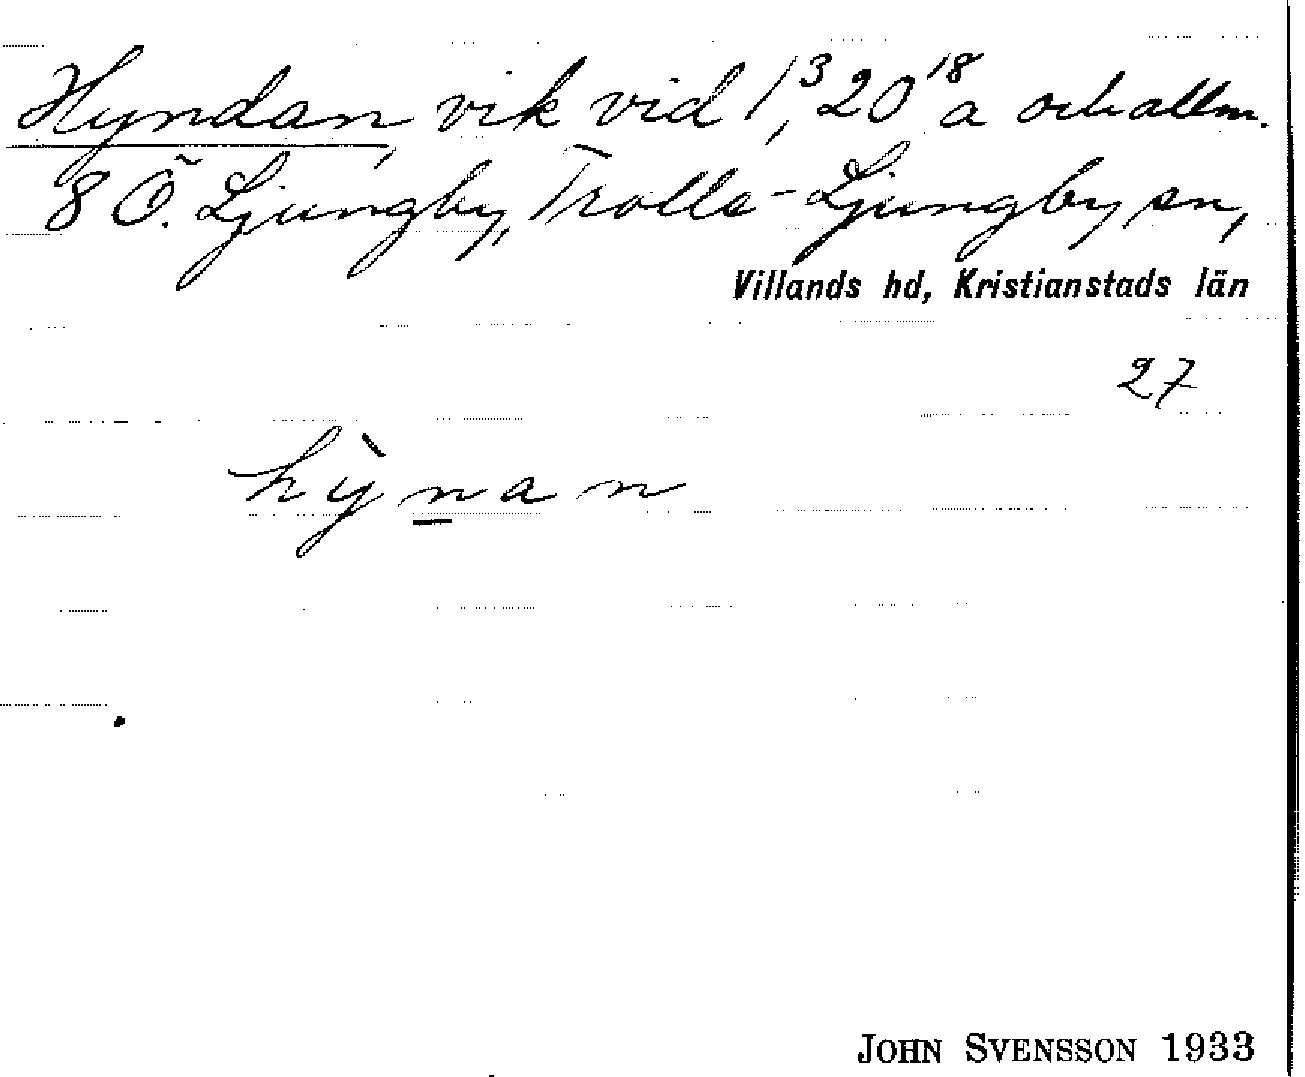 Hyndan, vik vid 1³, 20¹⁸ a och allm.
8 Ö. Ljungby, Trolle-Ljungby sn,
Villands hd, Kristianstads län
27
hỳnan
JOHN SVENSSON 1933